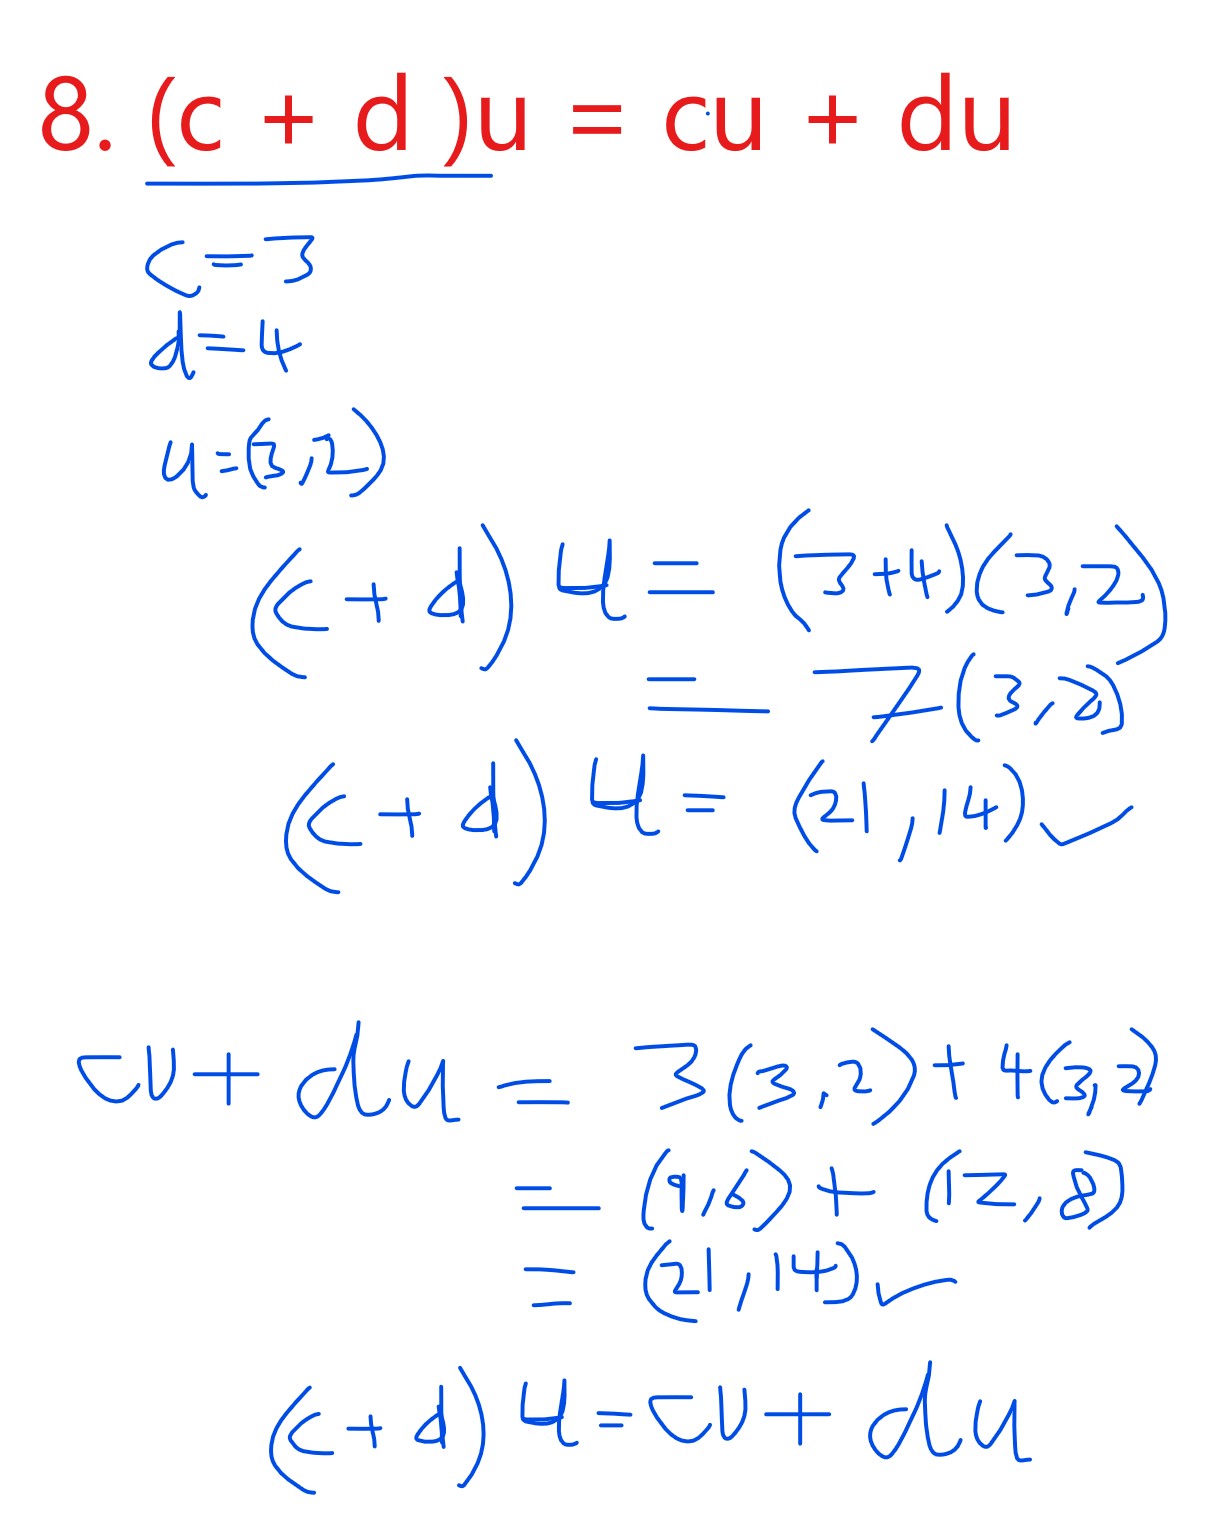 8. (c + d )u = cu + du
c = 3
d = 4
u = (3,2)
(c + d) u = (3+4)(3,2)
= 7(3,2)
(c + d) u = (21,14) ✓
cu + du = 3(3,2) + 4(3,2)
= (9,6) + (12,8)
= (21,14) ✓
(c + d) u = cu + du